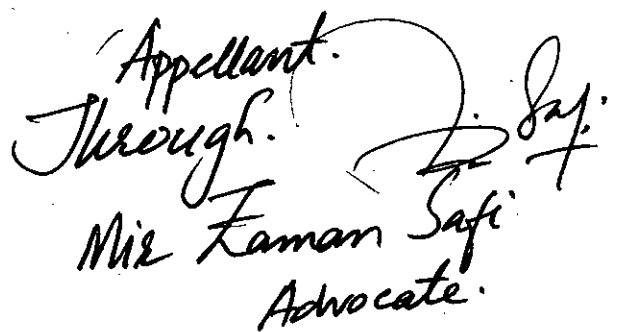 Appellant.
Through.
Mir Zaman Safi
Advocate.